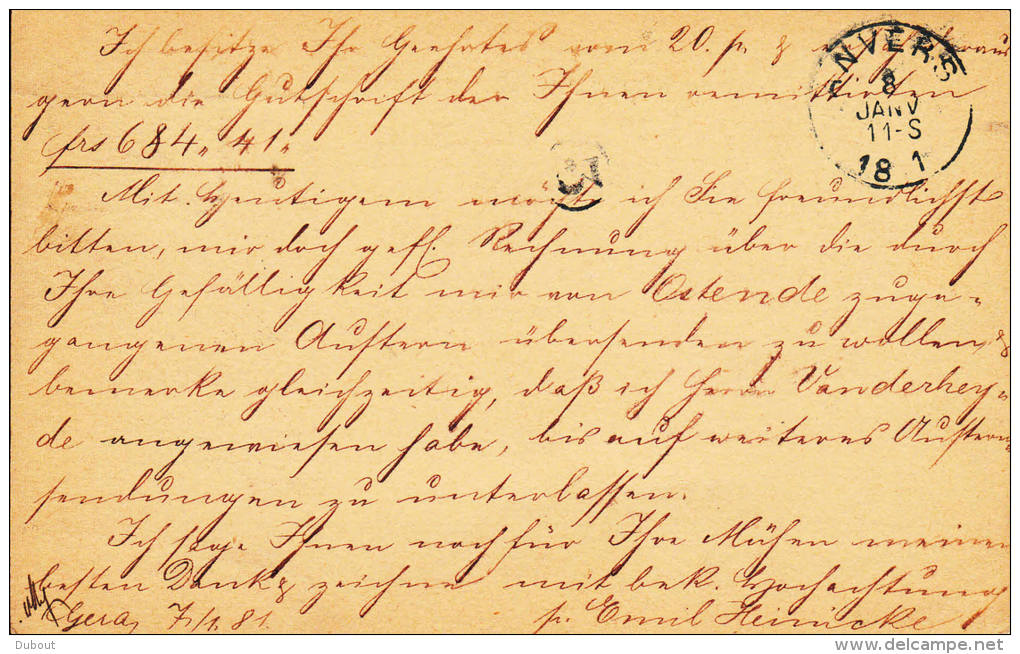 Ich besitze Ihr Geehrtes vom 20. p. & daraus
gern die Gutschrift der Ihnen remittirten
frs 684 „ 41 „
Mit Heutigem möcht ich Sie freundlichst
bitten, mir doch gefl. Rechnung über die durch
Ihre Gefälligkeit mir von Ostende zuge-
gangenen Austern übersenden zu wollen, &
bemerke gleichzeitig, daß ich Herrn Vanderhey-
de angewiesen habe, bis auf weiteres Austern-
sendungen zu unterlassen.
Ich sage Ihnen noch für Ihre Mühen meinen
besten Dank & zeichne mit bek. Hochachtung
Gera, 7/1. 81.
p. Emil Heinicke
ANVERS
8
JANV
11-S
18 1
Dubout
delcampe.net